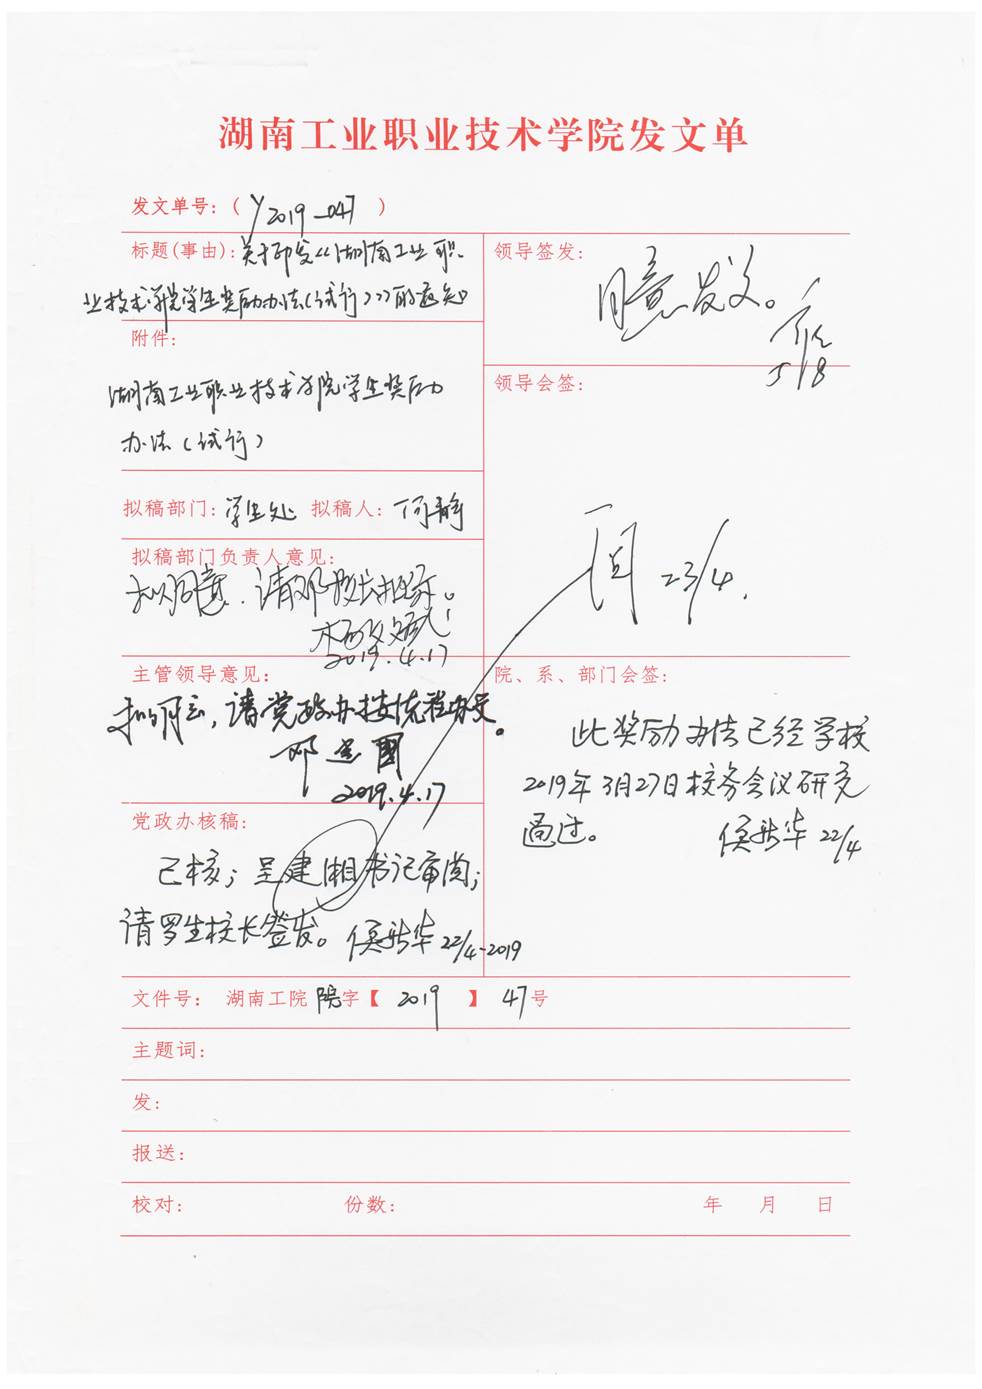 湖南工业职业技术学院发文单
发文单号：（ Y2019-047 ）
标题(事由)：关于印发《湖南工业职
业技术学院学生奖励办法(试行)》的通知
附件：
湖南工业职业技术学院学生奖励
办法（试行）
拟稿部门：学生处 拟稿人：何静
拟稿部门负责人意见：
拟同意，请邓校长批示。
2019.4.17
主管领导意见：
拟同意，请党政办按流程办文。
邓
2019.4.17
党政办核稿：
已核；呈建湘书记审阅；
请罗生校长签发。侯新华 22/4-2019
领导签发：
同意发文。
5/8
领导会签：
23/4.
院、系、部门会签：
此奖励办法已经学校
2019年3月27日校务会议研究
通过。 侯新华 22/4
文件号： 湖南工院 院字【 2019 】 47号
主题词：
发：
报送：
校对： 份数： 年 月 日